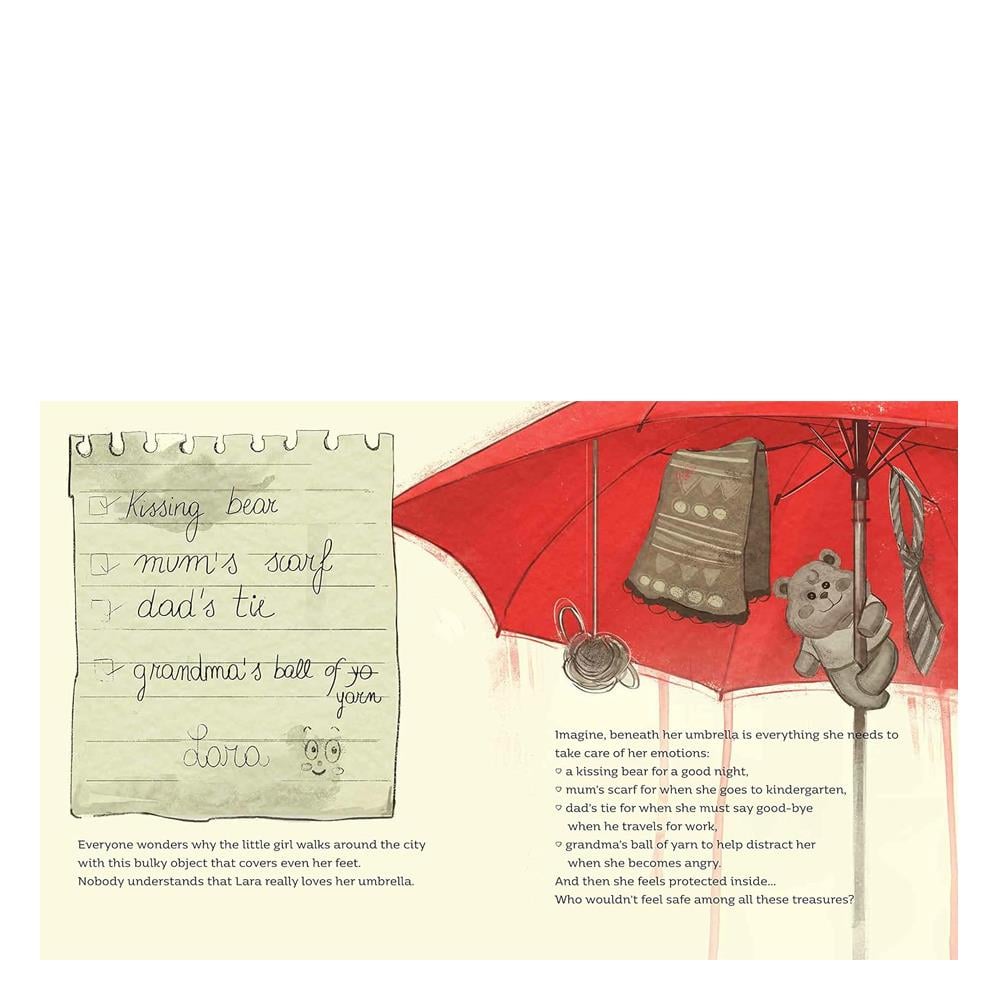 Kissing bear
mum's scarf
dad's tie
grandma's ball of yo
yarn
Lara
Everyone wonders why the little girl walks around the city
with this bulky object that covers even her feet.
Nobody understands that Lara really loves her umbrella.
Imagine, beneath her umbrella is everything she needs to
take care of her emotions:
♡ a kissing bear for a good night,
♡ mum's scarf for when she goes to kindergarten,
♡ dad's tie for when she must say good-bye
when he travels for work,
♡ grandma's ball of yarn to help distract her
when she becomes angry.
And then she feels protected inside...
Who wouldn't feel safe among all these treasures?